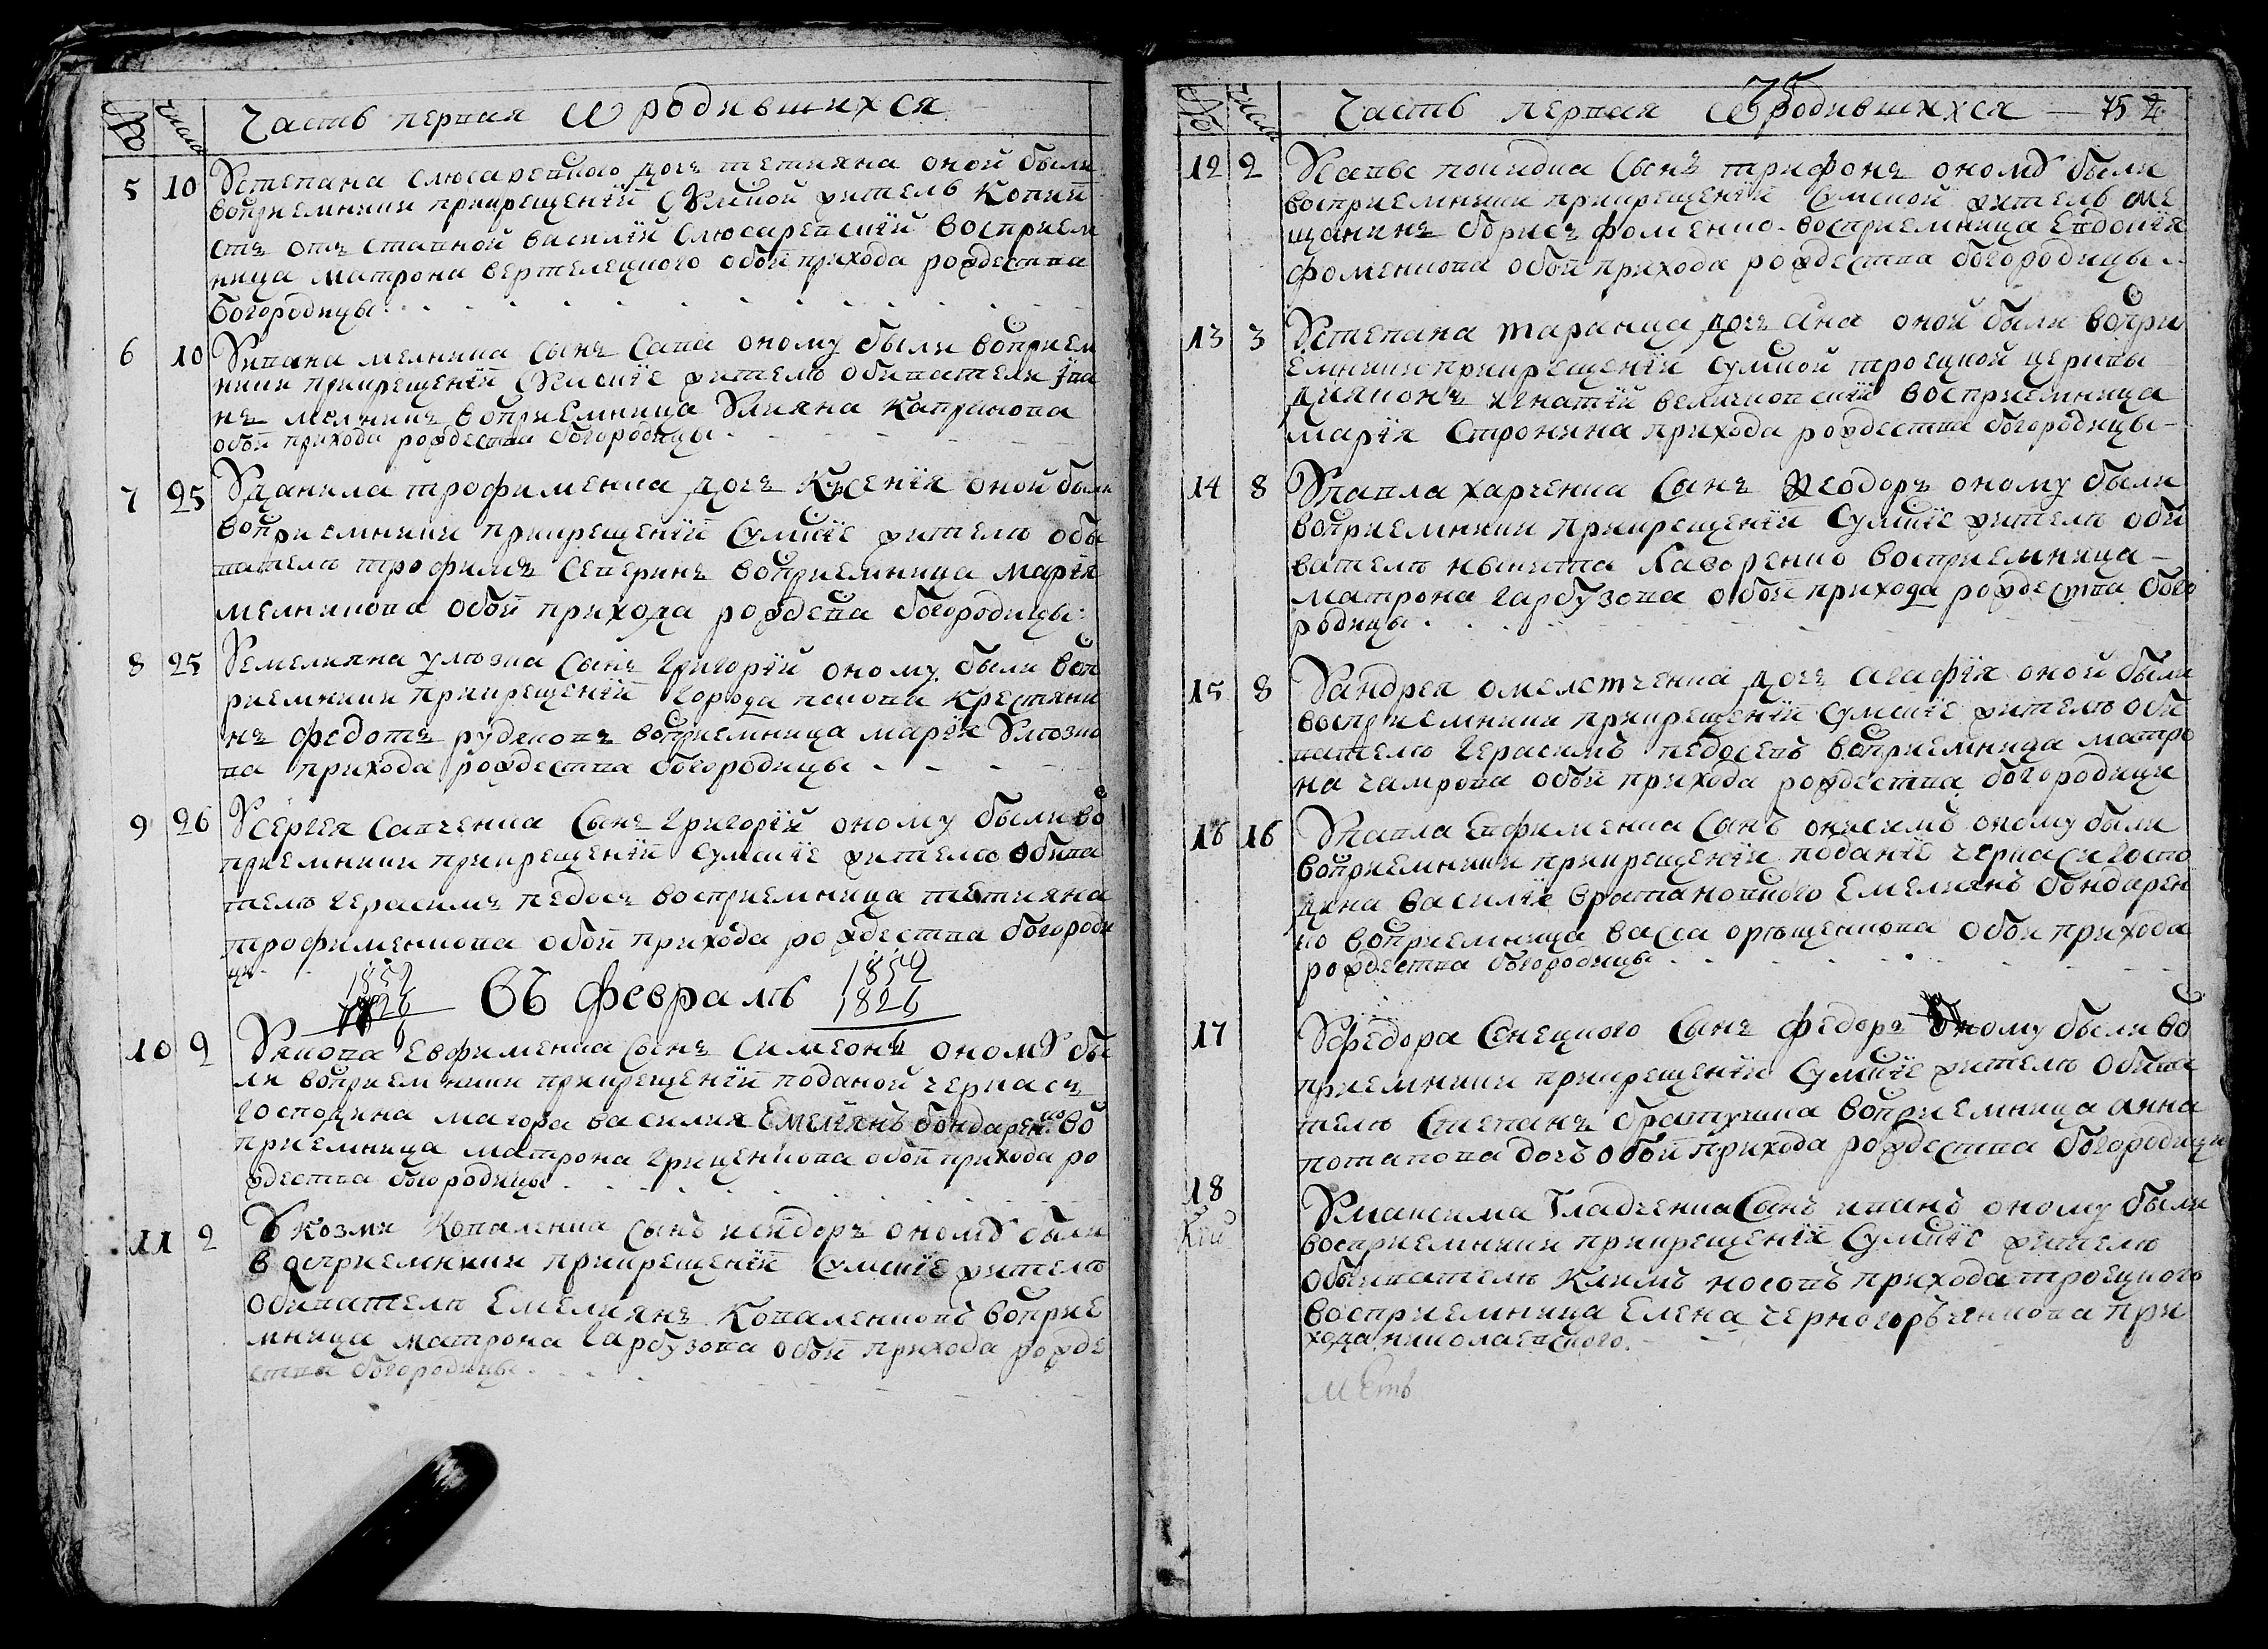 № числа Часть первая ѿ родившихся
5 10 Устепана слюсаревского дочь тетияна оной были
воприемники прикрещении Сумской житель копии
стъ отъ ставной василий Слюсаревский восприем
ница матрона вертелецкого обои прихода рождества
богородицы
6 10 Уивана мелника сынъ Сава оному были воприем
ники прикрещении Сумские жителѣ обивателя Ива
нъ мелникъ воприемница Улияна каприкова
обои прихода рождества богородицы
7 25 Уданила трофименка дочь Ксения оной были
воприемники прикрещении Сумские жителѣ обы
вателѣ трофимъ Северинъ воприемница мария
мелникова обои прихода рождева богородицы
8 25 Уемелияна узлюзка сынъ григорий оному были воп
риемники прикрещении города пскова крестяни
нъ федотъ рудяковъ воприемница мария Улюзко
ва прихода рождества богородицы
9 26 Усергея Савченка Сынъ григорий оному были во
приемники прикрещении сумские жителѣ обива
телѣ герасимъ недосъ восприемница тетияна
трофименкова обои прихода рождества богороди
цы
1852 1852
1826 въ февралѣ 1826
10 2 Уякова Евфименка сынъ Симеонъ оному бы
ли воприемники прикрещении поданой черкасъ
господина маиора василия Емелиянъ бондаренко во
приемница матрона грищенкова обои прихода ро
ждества богородицы
11 2 У козми коваленка сынъ исидоръ оному были
восприемники прикрещении Сумские жителѣ
обивателѣ Емелиянъ Коваленковъ воприе
мница матрона гарбузова обои прихода рожде
ства богородицы
75
№ числа Часть первая ѿ родившихся 75 2
12 2 Усавы Сынъ трифонъ оному были
восприемники прикрещении Сумской житель ме
щанинъ борисъ фоменко восприемница Евдокия
фоменкова обои прихода рождества богородицы
13 3 Устепана таранца дочь Ана оной были вопри
емники прикрещении Сумской троецкой церквы
диякокъ игнатий величковский восприемница
мария Стронина прихода рождества богородицы
14 8 Упавла харченка Сынъ Феодоръ оному были
воприемники прикрещении Сумские жителѣ оби
вателѣ никита Лазоренко восприемница
матрона гарбузова обои прихода рождества бого
родицы
15 8 Уандрея омелетченка дочь агафия оной были
восприемники прикрещении Сумские жителѣ оби
вателѣ герасимъ недосевъ воприемница матро
на чамрова обои прихода рождества богородицы
16 16 Упавла Евфименка Сынъ онисимъ оному были
воприемники прикрещении подание черкаси госпо
дина василия Емелиянъ бондарен
ко воприемница васса орѣщенкова обои прихода
рождества богородицы
17 Уфедора Сенецкого Сынъ федоръ оному были во
приемники прикрещении Сумские жителѣ обива
телѣ Степанъ братушка воприемница анна
потапова дочъ обои прихода рождества богородицы
18 Умаксима Гладченка Сынъ иванъ оному были
восприемники прикрещения Сумские жителѣ
обывателѣ Климъ носовъ прихода троецкого
восприемница Елена черногорченкова при
хода николаевского